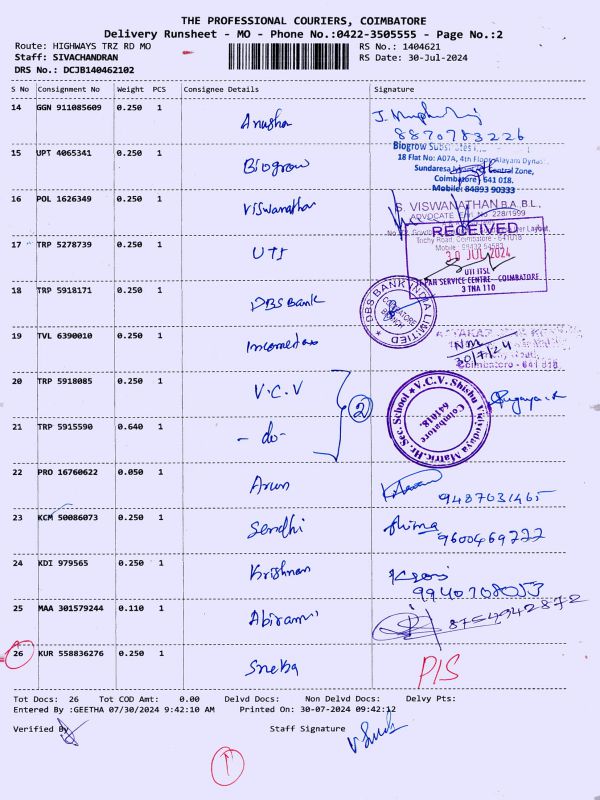 THE PROFESSIONAL COURIERS, COIMBATORE
Delivery Runsheet - MO - Phone No.:0422-3505555 - Page No.:2
Route: HIGHWAYS TRZ RD MO
RS No.: 1404621
Staff: SIVACHANDRAN
RS Date: 30-Jul-2024
DRS No.: DCJB140462102
S No Consignment No Weight PCS Consignee Details Signature
14 GGN 911085609 0.250 1 Anusha
8870783226
15 UPT 4065341 0.250 1 Biogrow
Biogrow
18 Flat No: A07A, 4th Floor
Central Zone,
Coimbatore - 641 018.
Mobile: 84893 90333
16 POL 1626349 0.250 1 Viswanathan
S. VISWANATHAN B.A.B.L.,
ADVOCATE
228/1999
Trichy Road, Coimbatore - 641018
17 TRP 5278739 0.250 1 UTI
RECEIVED
30 JUL 2024
UTI ITSL
PAN SERVICE CENTRE - COIMBATORE
3 TNA 110
18 TRP 5918171 0.250 1 DBS Bank
DBS BANK INDIA LIMITED
COIMBATORE
BRANCH
19 TVL 6390010 0.250 1 Incometax
30/7/24
Coimbatore - 641 018.
20 TRP 5918085 0.250 1 V.C.V
2
V.C.V. Shishu Vidyodaya Matric. Hr. Sec. School
Coimbatore
641018.
21 TRP 5915590 0.640 1 - do -
22 PRO 16760622 0.050 1 Arun
9487031465
23 KCM 50086073 0.250 1 Sendhi
9600469777
24 KDI 979565 0.250 1 Krishnan
9940708053
25 MAA 301579244 0.110 1 Abirami
8754942872
26 KUR 558836276 0.250 1 Sneka P/S
Tot Docs: 26 Tot COD Amt: 0.00 Delvd Docs: Non Delvd Docs: Delvy Pts:
Entered By :GEETHA 07/30/2024 9:42:10 AM Printed On: 30-07-2024 09:42:12
Verified By Staff Signature